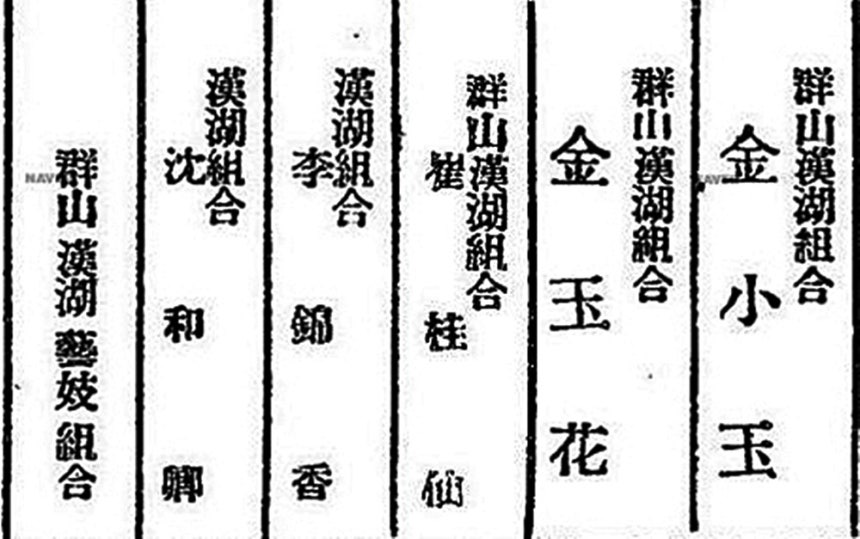 群山漢湖組合
金小玉
群山漢湖組合
金玉花
群山漢湖組合
崔桂仙
漢湖組合
李錦香
漢湖組合
沈和卿
群山漢湖藝妓組合